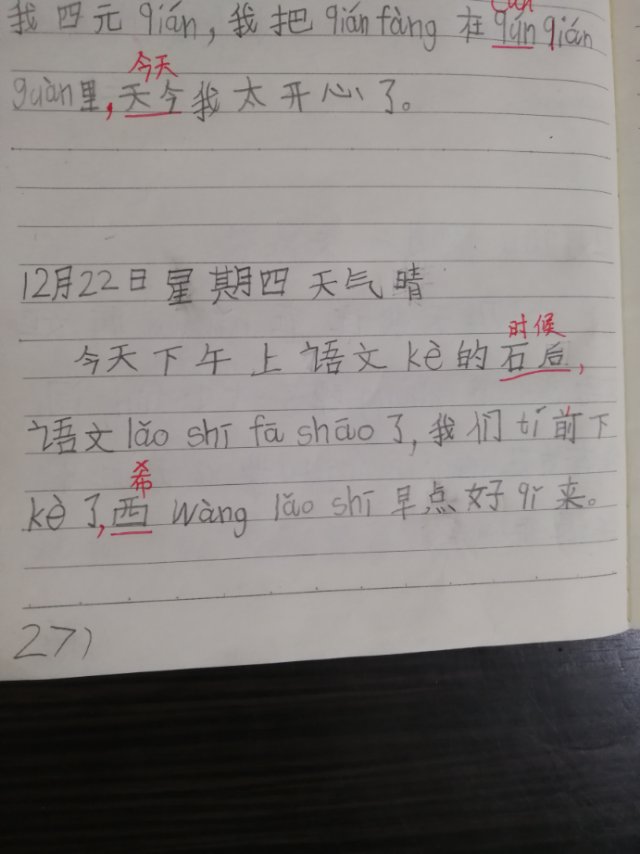 我四元qián，我把qián fàng在qún qián
今天
guàn里，天今我太开心了。
12月22日星期四天气晴
时候
今天下午上语文kè的石后，
语文lǎo shī fā shāo了，我们tí前下
希
kè了，西wàng lǎo shī早点好qǐ来。